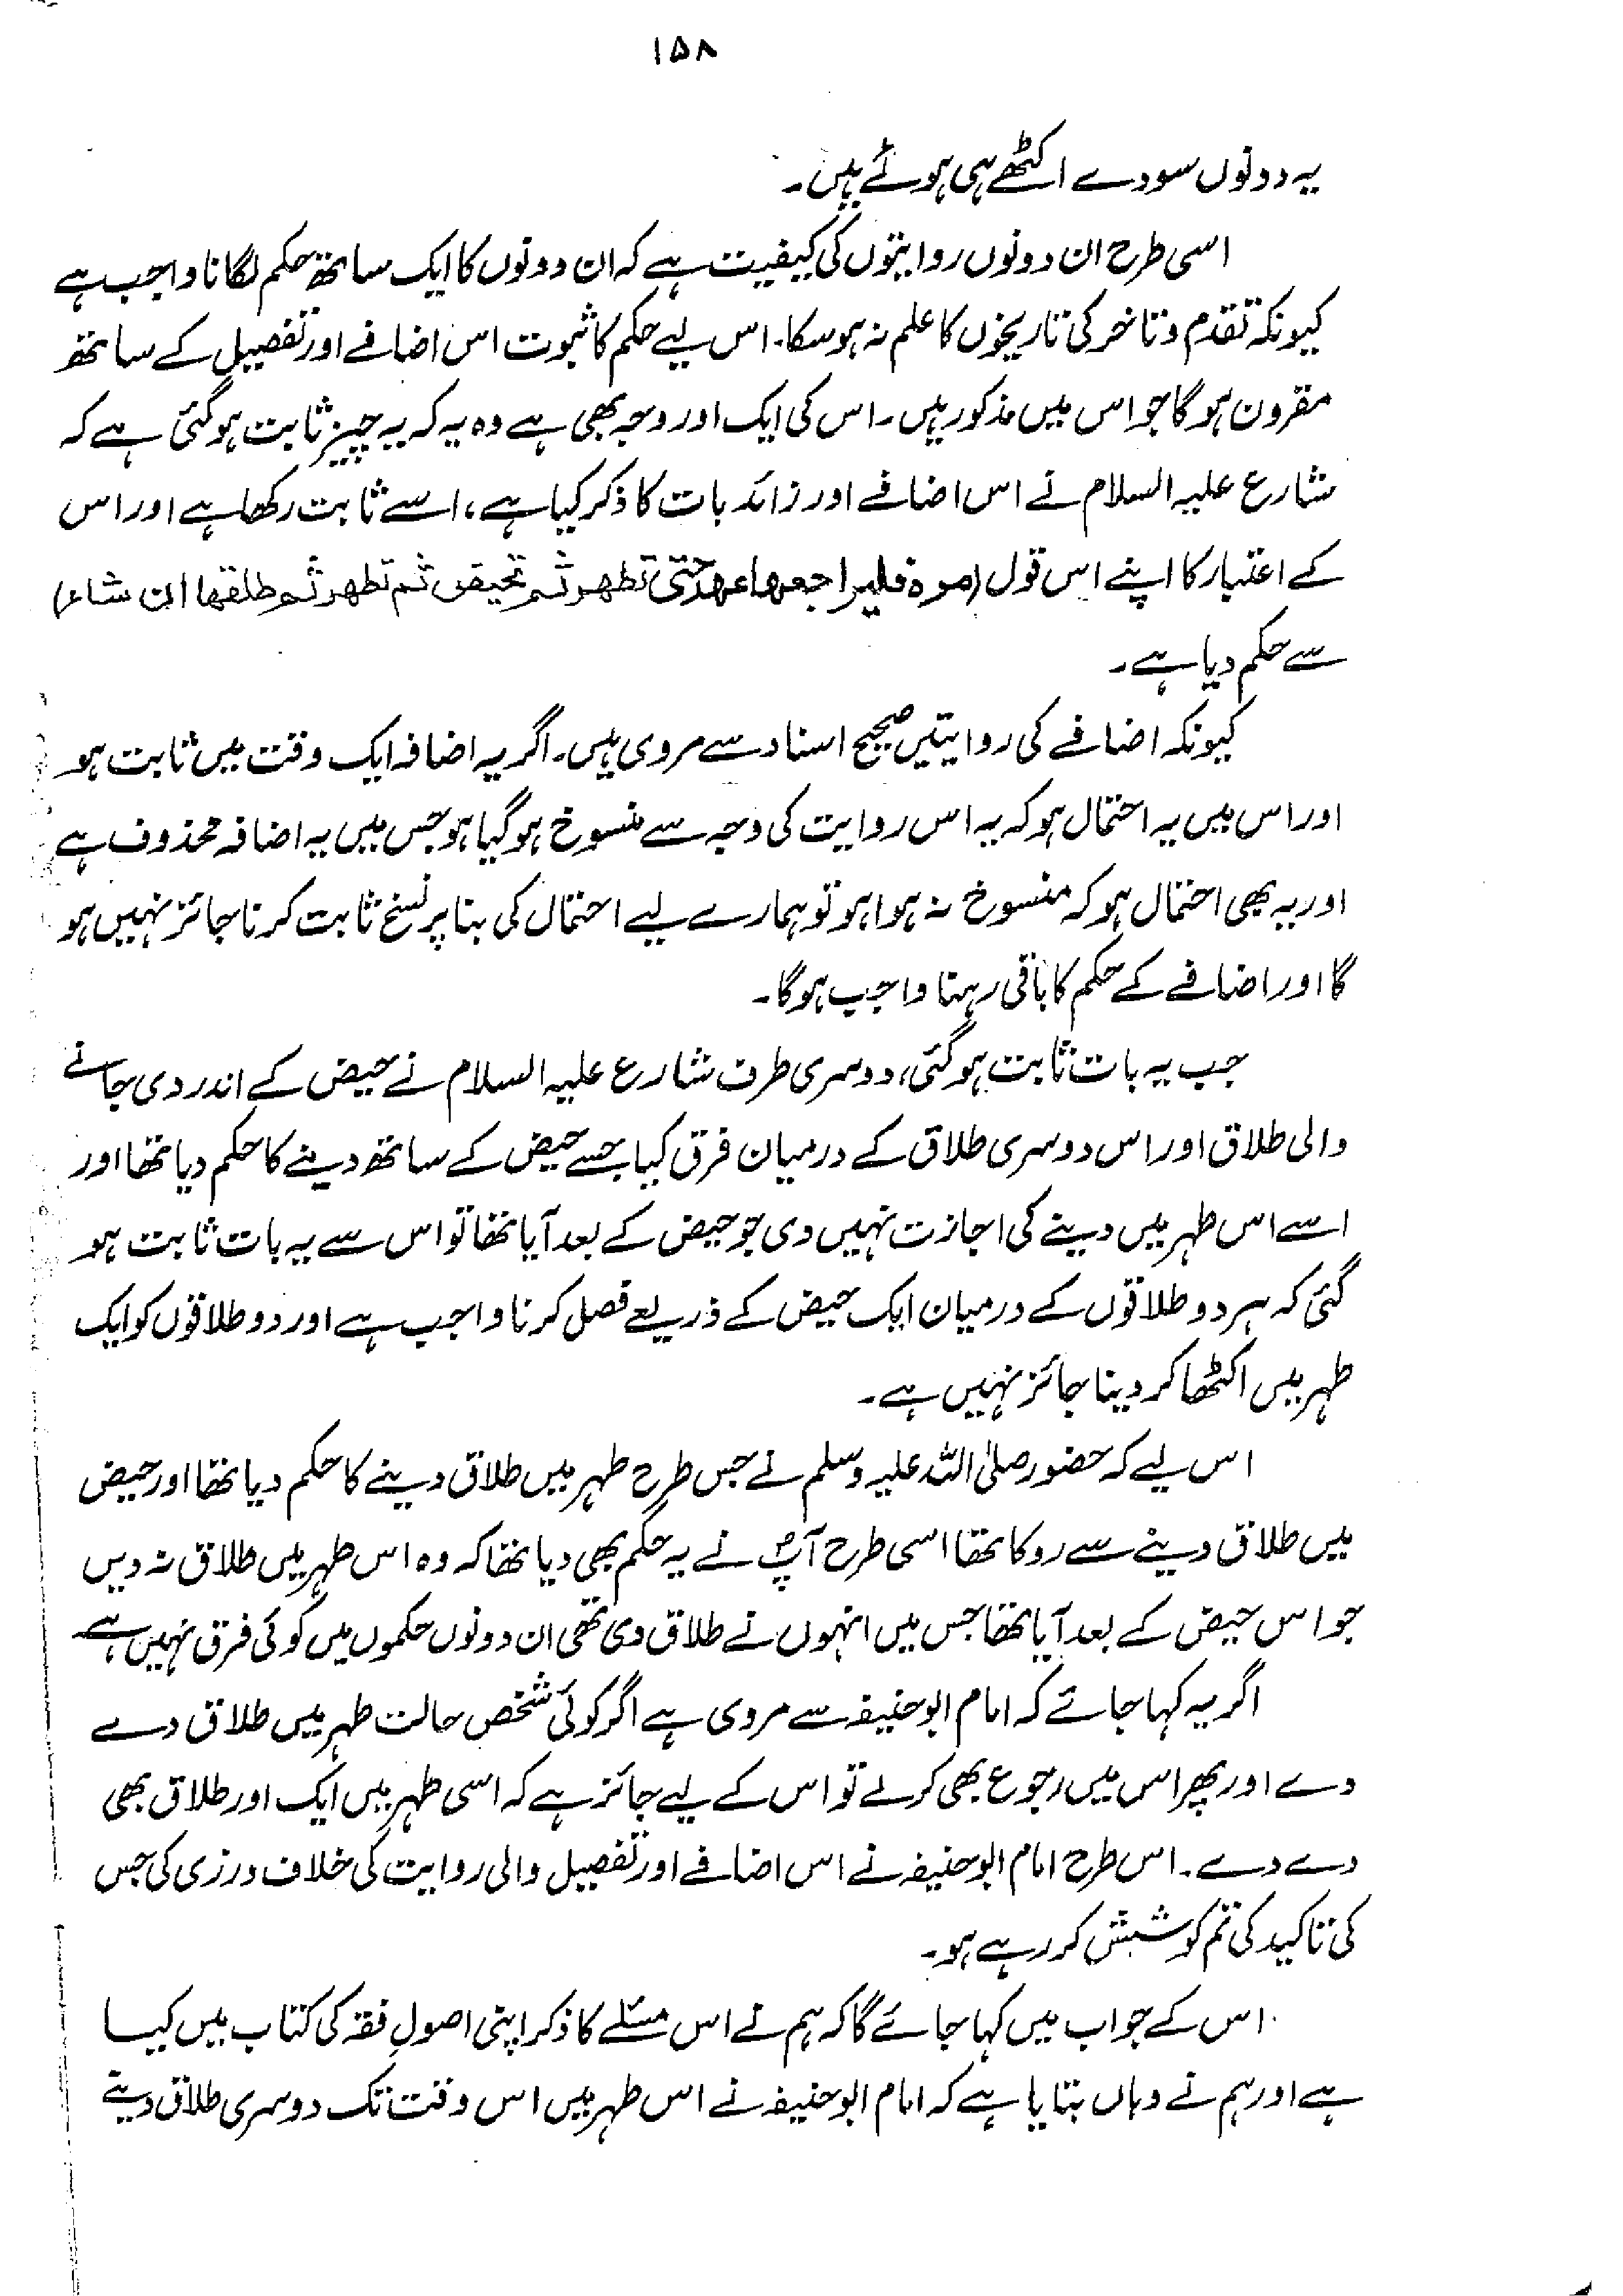 ۱۵۸
یہ دونوں سودے اکٹھے ہی ہوئے ہیں۔
اسی طرح ان دونوں روایتوں کی کیفیت ہے کہ ان دونوں کا ایک ساتھ حکم لگانا واجب ہے
کیونکہ تقدم وتاخر کی تاریخوں کا علم نہ ہو سکا۔ اس لیے حکم کا ثبوت اس اضافے اور تفصیل کے ساتھ
مقرون ہو گا جو اس میں مذکور ہیں۔ اس کی ایک اور وجہ بھی ہے وہ یہ کہ یہ چیز ثابت ہو گئی ہے کہ
شارع علیہ السلام نے اس اضافے اور زائد بات کا ذکر کیا ہے، اسے ثابت رکھا ہے اور اس
کے اعتبار کا اپنے اس قول (مرہ فلیراجعھا حتی تطھر ثم تحیض ثم تطھر ثم طلقھا ان شاء)
سے حکم دیا ہے۔
کیونکہ اضافے کی روایتیں صحیح اسناد سے مروی ہیں۔ اگر یہ اضافہ ایک وقت میں ثابت ہو
اور اس میں یہ احتمال ہو کہ یہ اس روایت کی وجہ سے منسوخ ہو گیا ہو جس میں یہ اضافہ محذوف ہے
اور یہ بھی احتمال ہو کہ منسوخ نہ ہوا ہو تو ہمارے لیے احتمال کی بنا پر نسخ ثابت کرنا جائز نہیں ہو
گا اور اضافے کے حکم کا باقی رہنا واجب ہوگا۔
جب یہ بات ثابت ہو گئی، دوسری طرف شارع علیہ السلام نے حیض کے اندر دی جانے
والی طلاق اور اس دوسری طلاق کے درمیان فرق کیا جسے حیض کے ساتھ دینے کا حکم دیا تھا اور
اسے اس طہر میں دینے کی اجازت نہیں دی جو حیض کے بعد آیا تھا تو اس سے یہ بات ثابت ہو
گئی کہ ہر دو طلاقوں کے درمیان ایک حیض کے ذریعے فصل کرنا واجب ہے اور دو طلاقوں کو ایک
طہر میں اکٹھا کر دینا جائز نہیں ہے۔
اس لیے کہ حضور صلی اللہ علیہ وسلم نے جس طرح طہر میں طلاق دینے کا حکم دیا تھا اور حیض
میں طلاق دینے سے روکا تھا اسی طرح آپؐ نے یہ حکم بھی دیا تھا کہ وہ اس طہر میں طلاق نہ دیں
جو اس حیض کے بعد آیا تھا جس میں انہوں نے طلاق دی تھی ان دونوں حکموں میں کوئی فرق نہیں ہے
اگر یہ کہا جائے کہ امام ابوحنیفہ سے مروی ہے اگر کوئی شخص حالت طہر میں طلاق دے
دے اور پھر اس میں رجوع بھی کرلے تو اس کے لیے جائز ہے کہ اسی طہر میں ایک اور طلاق بھی
دے دے۔ اس طرح امام ابوحنیفہ نے اس اضافے اور تفصیل والی روایت کی خلاف ورزی کی جس
کی تاکید کی تم کوشش کر رہے ہو۔
اس کے جواب میں کہا جائے گا کہ ہم نے اس مسئلے کا ذکر اپنی اصولِ فقہ کی کتاب میں کیا
ہے اور ہم نے وہاں بتایا ہے کہ امام ابوحنیفہ نے اس طہر میں اس وقت تک دوسری طلاق دینے